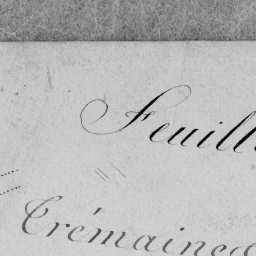 Feuill
Crémained